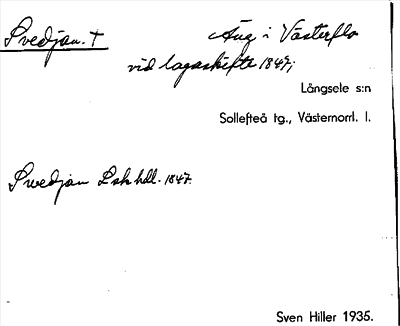 Svedjan. † Äng i Västerflo
vid lagaskifte 1847;
Långsele s:n
Sollefteå tg., Västernorrl. l.
Svedjan Lskhdl. 1847.
Sven Hiller 1935.